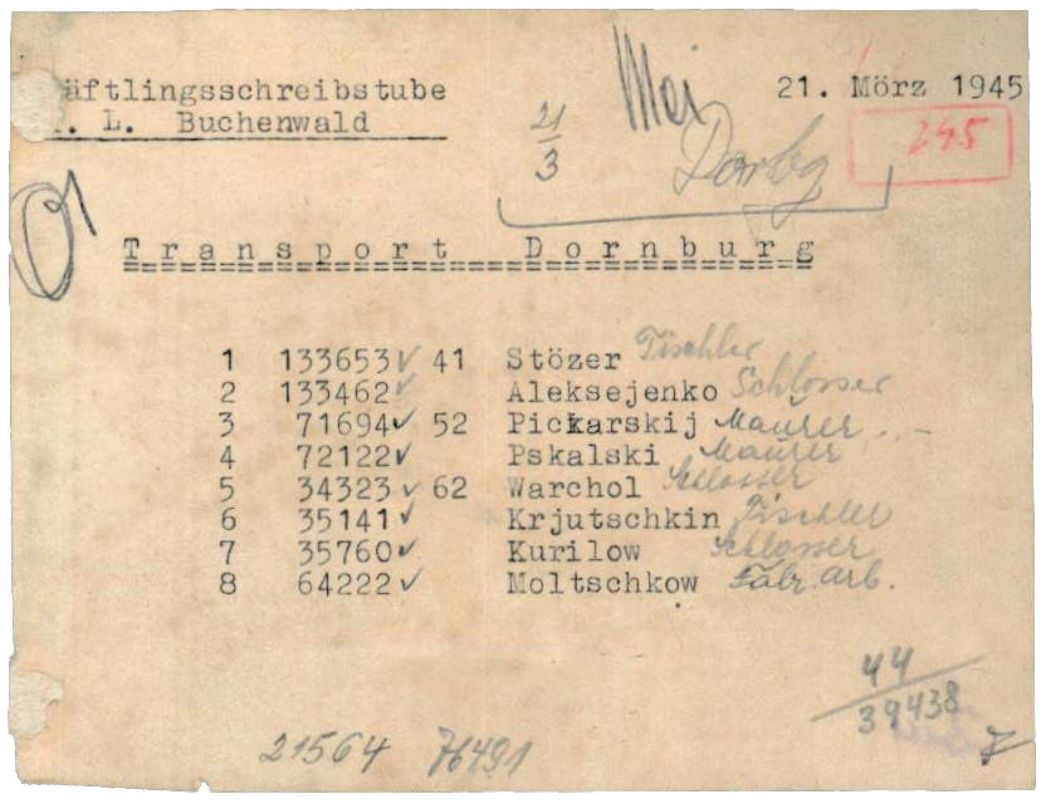 äftlingsschreibstube
. L. Buchenwald
21. Mörz 1945
21/3
Mei
Dorbg
245
Transport Dornburg
1 133653✓ 41 Stözer Tischler
2 133462✓ Aleksejenko Schlosser
3 71694✓ 52 Pickarskij Maurer
4 72122✓ Pskalski Maurer
5 34323✓ 62 Warchol Schlosser
6 35141✓ Krjutschkin Tischler
7 35760✓ Kurilow Schlosser
8 64222✓ Moltschkow Fabr. arb.
44
39438
21564 76491